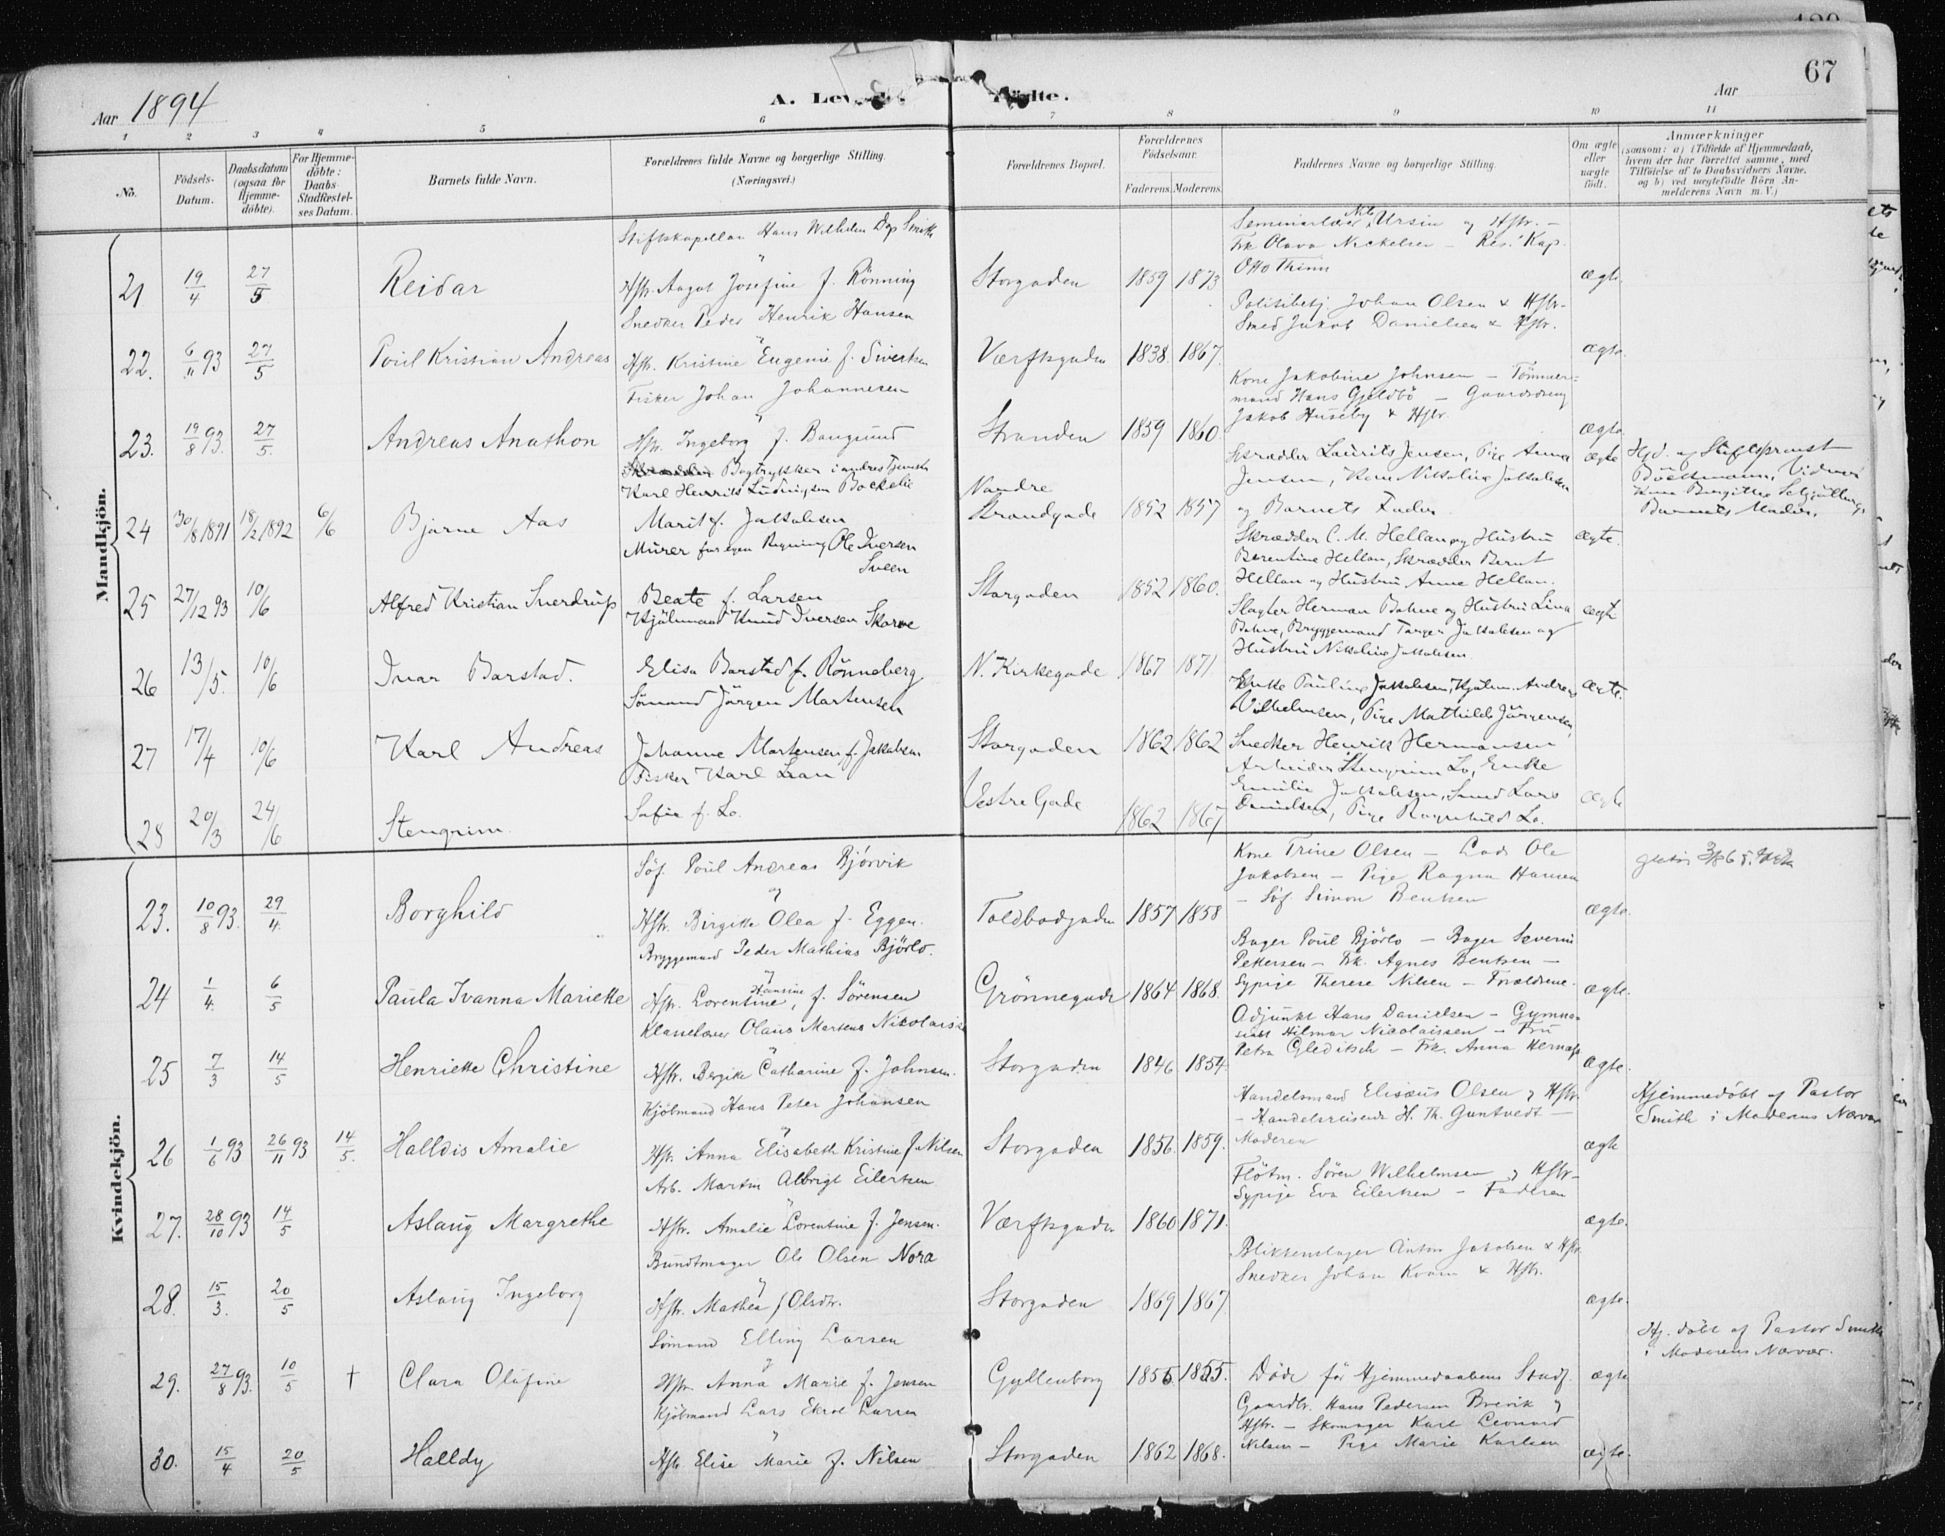 67
Aar 1894
A. Lev
dte.
Aar
1 2 3 4 5 6 7 8 9 10 11
No.
Fødsels-Datum.
Daabsdatum (ogsaa for Hjemme-døbte).
For Hjemme-døbte: Daabs-Stadfæstel-ses Datum.
Barnets fulde Navn.
Forældrenes fulde Navne og borgerlige Stilling. (Næringsvei.)
Forældrenes Bopæl.
Forældrenes Fødselsaar.
Faderens. Moderens.
Faddernes Navne og borgerlige Stilling.
Om ægte eller uægte født.
Anmærkninger
(saasom: a) i Tilfælde af Hjemmedaab, hvem der har forrettet samme, med Tilføielse af to Daabsvidners Navne, og b) ved uægtefødte Børn An-melderens Navn m. V.)
Mandkjön.
Stiftskapellan Hans Wilhelm Dop Smith
21 19/4 27/5 Reidar
Hstr. Aagot Josefine f. Rönning
Storgaden 1859 1873
Seminarlærer Nils Ursin og Hstr. –
Frk. Olava Nickelsen – Res. Kap.
Otto Thinn
ægte.
Snedker Peder Henrik Hansen
22. 6/11 93 27/5 Poul Kristian Andreas
Hstr. Kristine Eugenie f. Sivertsen
Værftsgaden 1838. 1867.
Politibetj. Johan Olsen & Hstr.
Smed Jakob Danielsen & Hstr.
ægte.
Fisker Johan Johannesen
23. 19/8 93. 27/5. Andreas Anathon
Hstr. Ingeborg f. Baugsund
Stranden 1839 1860
Kone Jakobine Johnsen – Tömmer=
mand Hans Gjeldbö – Gaardsdreng
Jakob Huseby & Hstr.
ægte.
Bogtrykker i andres Tjeneste
Karl Henrik Ludvigsen Bockelie
24 30/8 1891 18/2 1892 6/6 Bjarne Aas
Marit f. Jakobsen
Nordre
Strandgade 1852 1857
Skrædder Laurits Jensen, Pige Anna
Jensen, Kone Nikoline Jakobsen
og Barnets Fader
ægte
Hjd. af Stiftsprovst
Böckmann, Vidner
Kone Birgitte
Barnets Moder.
Murer for egen Regning Ole Iversen
Sveen
25 27/12 93 10/6 Alfred Kristian Sverdrup
Beate f. Larsen
Storgaden 1852 1860.
Skrædder C. M. Hellan og Hustru
Berentine Hellan, Skrædder Bernt
Hellan og Hustru Anne Hellan.
ægte.
Kjöbmand Knud Iversen Skarve
26 13/5. 10/6 Ivar Barstad.
Elisa Barstad f. Rönneberg
N. Kirkegade 1867 1871
Slagter Herman Bahne og Hustru Lina
Bahne, Bryggemand Torger Jakobsen og
Hustru Nikoline Jakobsen
ægte
Sömand Jörgen Martensen
27 17/4 10/6 Karl Andreas
Johanne Martensen f. Jakobsen
Storgaden 1862 1862
Enke Pauline Jakobsen, Kjöbm. Andreas
Vilhelmsen, Pige Mathilde Jörgensen,
Snedker Henrik Hermansen
ægte.
Fisker Karl Lian
28 20/3 24/6 Stengrim
Sofie f. Lo.
Vestre Gade 1862 1867
Arbeider Stengrim Lo, Enke
Emilie Jakobsen, Smed Lars
Danielsen, Pige Ragnhild Lo.
ægte
Kvindekjön.
Söf. Poul Andreas Bjørvik
og
23. 10/8 93. 29/4. Borghild
Hstr. Birgitte Olea f. Eggen.
Toldbodgaden 1857 1858
Kone Trine Olsen – Lods Ole
Jakobsen – Pige Ragna Hansen
– Söf. Simon Bentsen
ægte.
Bryggemand Peder Mathias Bjørlo.
24 1/4. 6/5 Paula Ivanna Mariette
Hstr. Lorentine Hansine, f. Sørensen
Grönnegade 1864 1868.
Bager Poul Bjørlo – Bager Severin
Pettersen – Frk. Agnes Bentsen –
Sypige Therese Nilsen – Forældrene.
ægte.
Klasselærer Olaus Martens Nicolaissen
25 7/3 14/5 Henriette Christine
Hstr. Bergitte Catharine f. Johnsen.
Storgaden 1846 1854
Adjunkt Hans Danielsen – Gymna=
siast Hilmar Nicolaissen – Fru
Petra Gleditsch – Frk. Anna Hernæs
ægte.
Kjöbmand Hans Peter Johansen
26 1/6 93 26/11 93 14/5. Halldis Amalie
Hstr. Anna Elisabeth Kristine f. Nilsen
Storgaden 1856. 1859.
Handelsmand Elisæus Olsen & Hstr.
– Handelsreisende H. Th. Guntvedt –
Moderen
ægte
Hjemmedöbt af Pastor
Smith i Moderens Nærvær
Arb. Martin Albrigt Eilertsen
27. 28/10 93 14/5 Aslaug Margrethe
Hstr. Amalie Lorentine f. Jensen.
Værftsgaden 1860 1871.
Flötm. Sören Wilhelmsen & Hstr.
Sypige Eva Eilertsen – Faderen
ægte.
Bundtmager Ole Olsen Nora
28. 15/3. 20/5 Aslaug Ingeborg
Hstr. Mathea f. Olsdtr.
Storgaden 1869 1867
Blikkenslager Anton Jakobsen & Hstr.
Snedker Johan Kvam & Hstr.
ægte.
Sömand Elling Larsen
29. 27/8 93. 10/5 † Clara Olufine
Hstr. Anna Marie f. Jensen
Gyllenborg 1855 1855.
Döde før Hjemmedaabens Stadf.
ægte
Hj. døbt af Pastor Smith
i Moderens Nærvær.
Kjöbmand Lars Ekrol Larsen
30. 15/4 20/5 Halldy
Hstr. Elise Marie f. Nilsen
Storgaden 1862 1868.
Gaardbr. Hans Pedersen Breivik &
Hstr. – Skomager Karl Leonard
Nilsen – Pige Marie Karlsen
ægte.